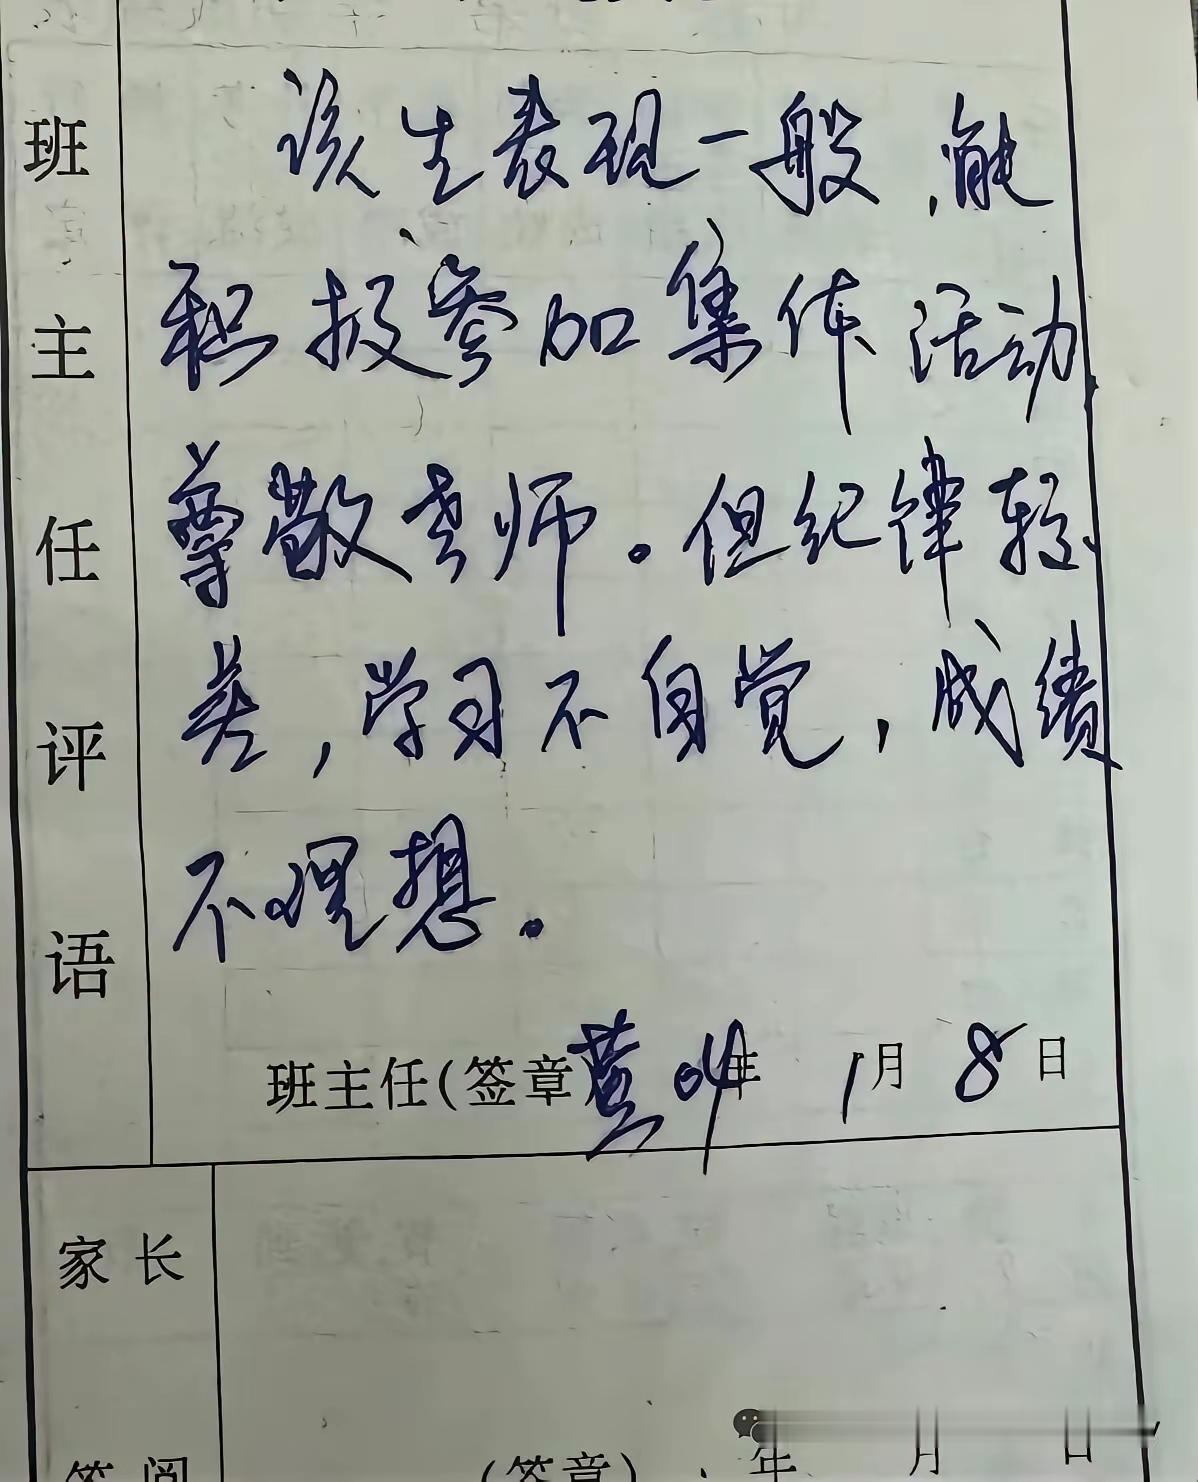 班主任评语
该生表现一般,能
积极参加集体活动
尊敬老师。但纪律较
差,学习不自觉,成绩
不理想。
班主任(签章 04年 1月 8日
家长
签阅
(签章) 年 月 日